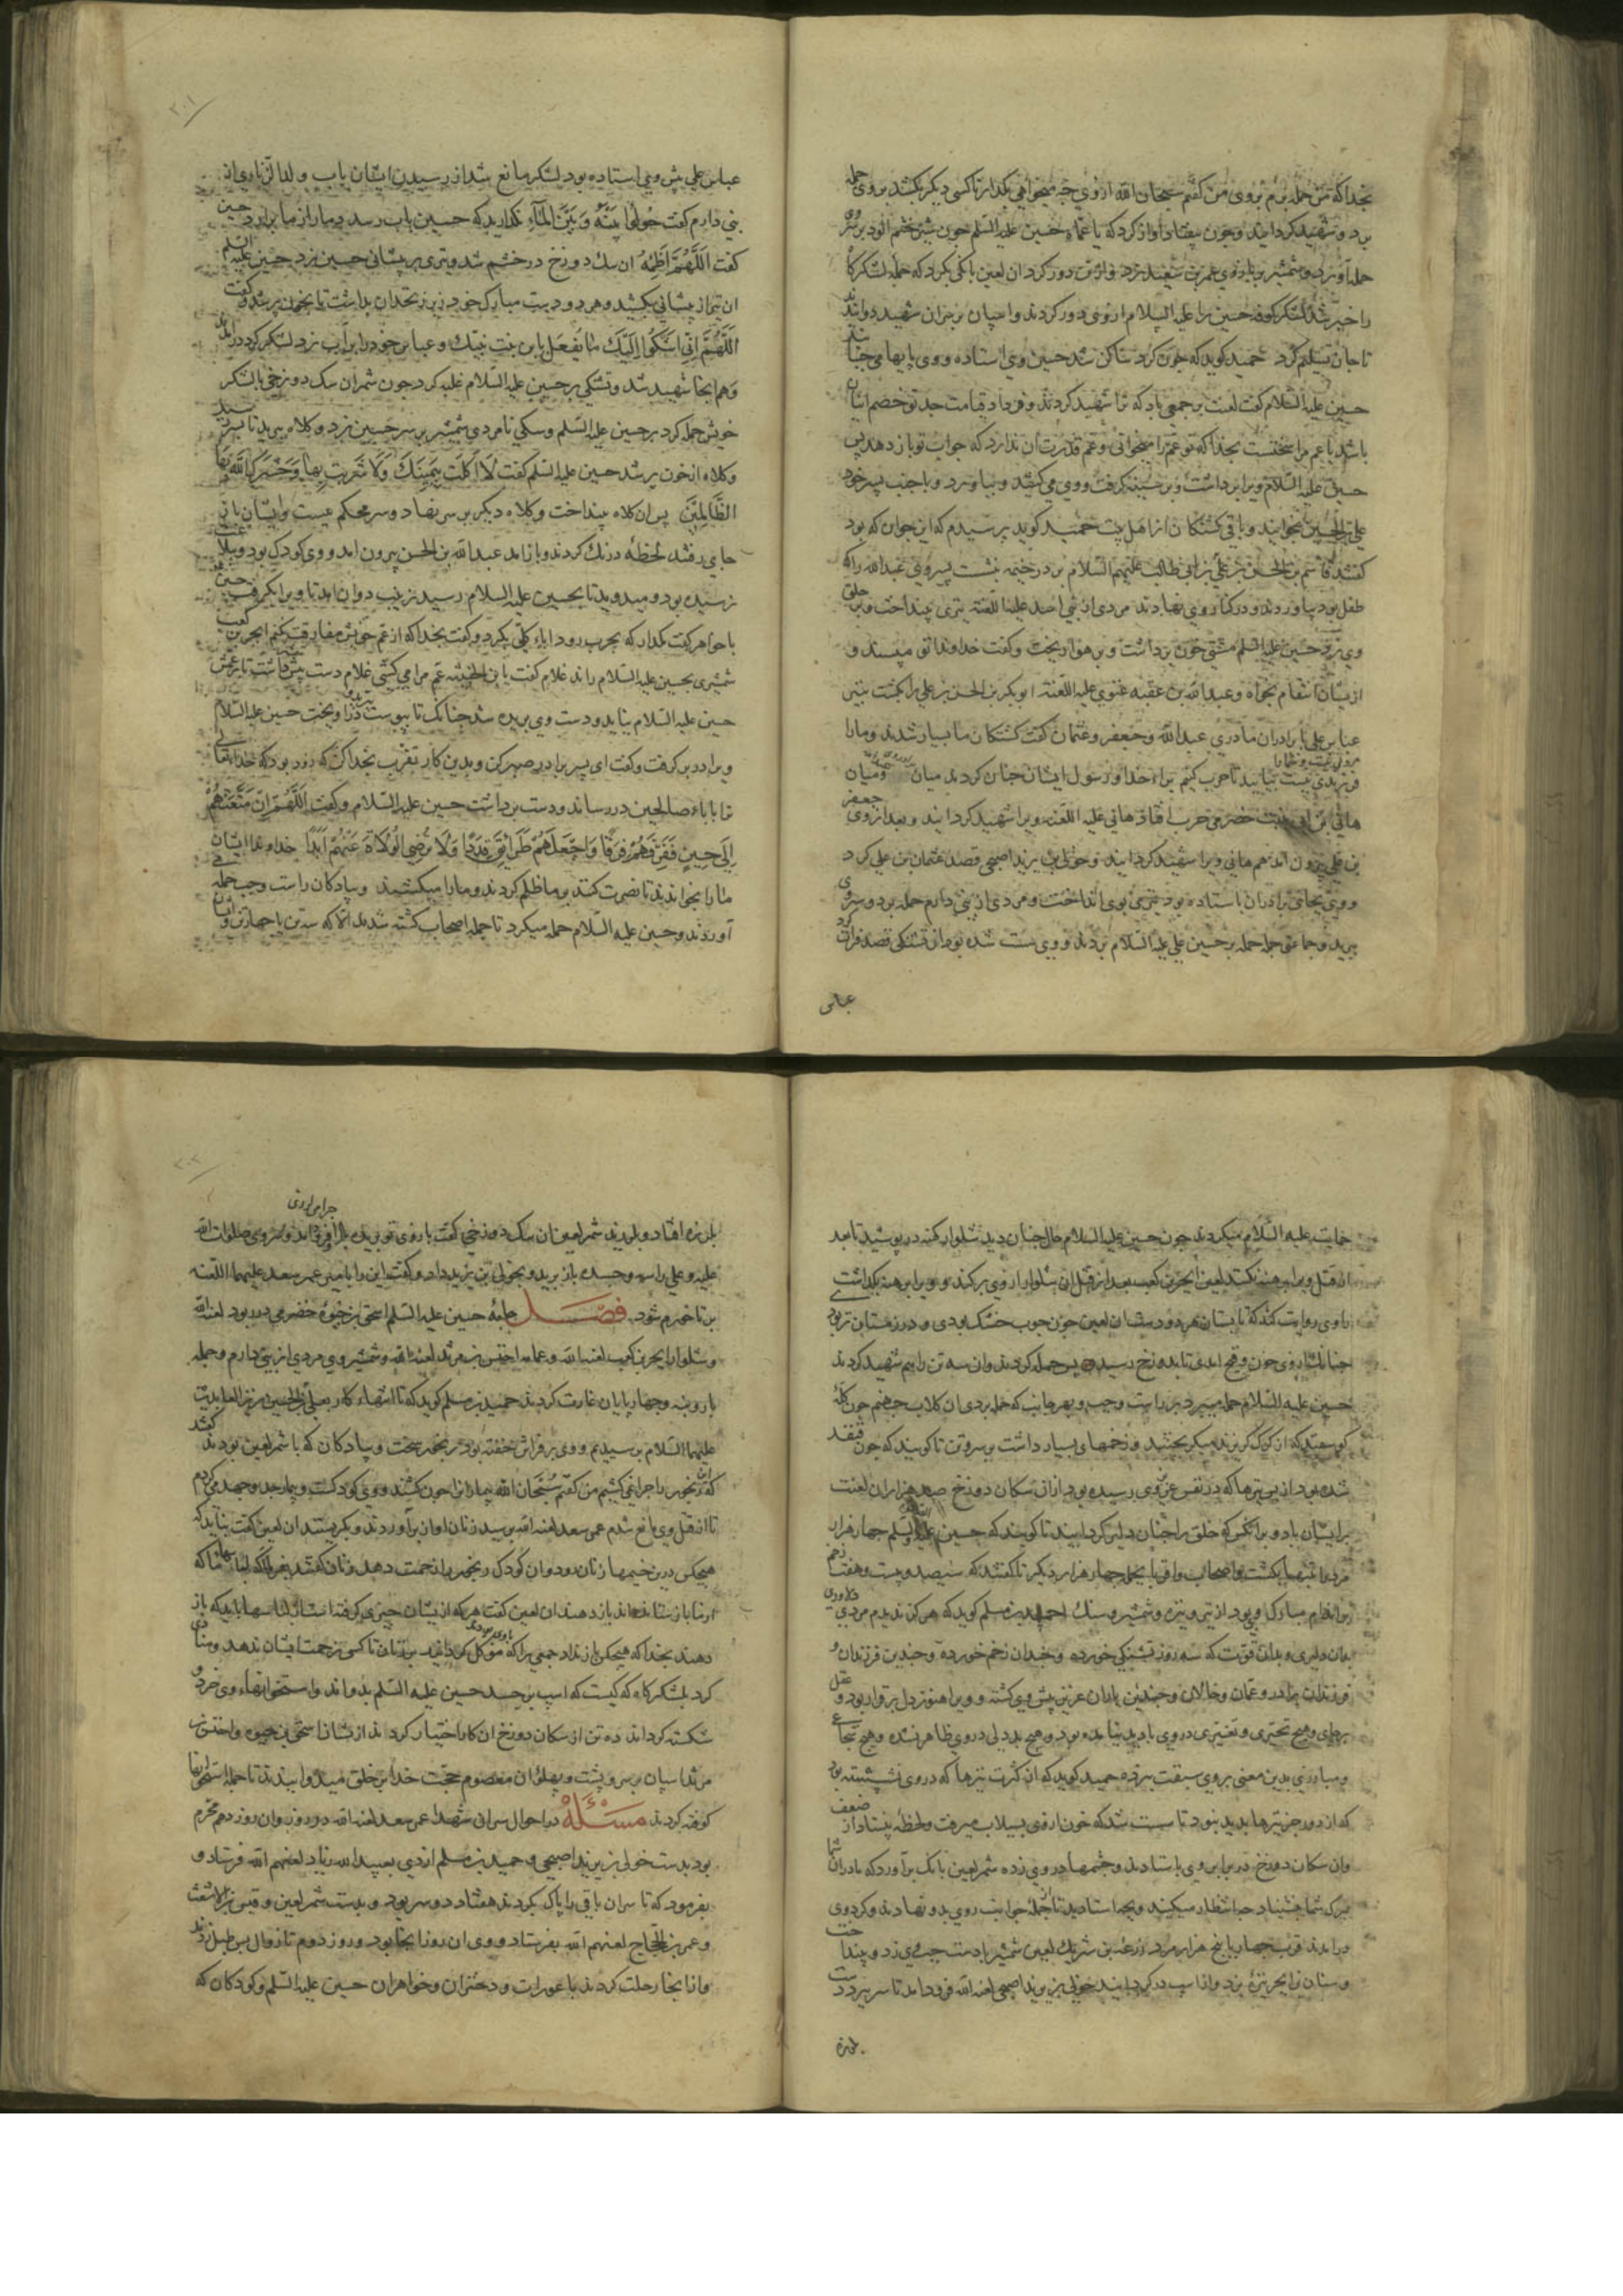 بخداکه من حمله برم بروی من کفتم سبحان الله ازوی چه میخواهی بکذار تا کسی دیکر بکشد بروی حمله
برد و شهید کردانید و چون بیفتاد آواز کرد که یا عماه حسین علیه السلم چون شیر خشم الود بر وی
حمله آورد و شمشیر بر بازوی عمر بن سعید زد و از تن دور کرد ان لعین بانکی بکرد که جمله لشکرکاه
را خبر شد لشکر کوفه حسین را علیه السلام ازوی دور کردند و اسپان بر سر ان شهید دوانیدند
تا جان تسلیم کرد حمید کوید که چون کرد ساکن شد حسین وی استاده و وی پایها می جنبانید
حسین علیه السلام کفت لعنت بر جمعی باد که ترا شهید کردند و فردا در قیامت جد تو خصم ایشان
باشد یا عم مرا سختست بخدا که تو عم را میخوانی و عم قدرت ان ندارد که جواب تو باز دهد پس
حسین علیه السلام ویرا برداشت و بر سینه کرفت و وی می کشید و بیاورد و با جنب پسر خود
علی بن الحسین بخوابند و باقی کشتکان از اهل بیت حمید کوید پرسیدم که این جوان که بود
کفتند قاسم بن الحسن بن علی بن ابی طالب علیهم السلام بر در خیمه بنشست پسر وی عبدالله را که
طفل بود بیاوردند و در کنار وی نهادند مردی از بنی اسد علیه اللعنه تیری بینداخت و بر حلق
وی زد حسین علیه السلم مشتی خون برداشت و بر هوا ریخت و کفت خداوندا تو مپسند و
ازیشان انتقام بخواه و عبدالله بن عقبه غنوی علیه اللعنه ابوبکر بن الحسن بن علی را بکشت بتیر
عباس علی با برادران مادری عبدالله و جعفر و عثمان کفت کشتکان ما بسیار شدند و مارا
فرزندی نیست بیایید تا حرب کنیم براء خدا و رسول ایشان چنان کردند میان و میان
هانی بن ابی ثبیت حضرمی حرب افتاد هانی علیه اللعنه ویرا شهید کردانید و بعد از وی جعفر
بن علی بیرون آمد هم هانی ویرا شهید کردانید و خولی بن یزید اصبحی قصد عثمان بن علی کرد
و وی بجای برادران باستاده بود تیری بوی انداخت و مردی از بنی دارم حمله برد و سر وی
ببرید و جماعتی جمله حمله بر حسین علی علیه السلام بردند و وی سست شده بود از تشنکی قصد فرات کرد
عباس
عباس علی پیش وی استاده بود لشکر مانع شد از رسیدن ایشان باب و لدا
بنی دارم کفت حُولُوا بَیْنَهُ وَ بَیْنَ المَاءِ نکذارید که حسین باب رسد دمار از ما برارد حسین
کفت اَللّهُمَّ اَظْمِهُ ان سک دوزخ درخشم شد و تیری بر پیشانی حسین زد حسین علیه السلم
ان تیر از پیشانی بکشید و هر دو دست مبارک خود در زیر زنخدان بداشت تا بخون پر شد و کفت
اَللّهُمَّ اِنّی اَشْکُوا اِلَیْکَ مَا یُفْعَل بابن بنت نبیک و عباس خود را بر آب زد لشکر کرد در امد
و هم انجا شهید شد و تشنکی بر حسین علیه السلام غلبه کرد چون شمر ان سک دوزخی با لشکر
خویش حمله کرد بر حسین علیه السلم و سکی نامردی شمشیر بر سر حسین زد و کلاه ببرید تا بسر رسید
و کلاه از خون پر شد حسین علیه السلم کفت لَا اَکَلَت بِیَمِینِکَ وَ لَا شَرِبت بِها وَ حَشَرَکَ اللّهُ مَعَ
الظَّالِمِیْنَ پس ان کلاه بینداخت و کلاه دیکر بر سر نهاد و سر محکم ببست و ایشان با
جای رفتند لحظهٔ درنک کردند و باز امد عبدالله بن الحسن بیرون امد و وی کودک بود و ببلاغت
نرسیده بود و میدوید تا بحسین علیه السلام رسید زینب دوان امد تا ویرا بکرفت حسین
با خواهر کفت مکذار که بحرب رود اباء کلی بکرد و کفت بخدا که از عم خویش مفارقت نکنم ابجر بن کعب
شمشیری بحسین علیه السلام راند غلام کفت یا بن الخبیثه عم مرا می کشی غلام دست پیش داشت تا بر عمش
حسین علیه السلام نیاید و دست وی بریده شد چنانک تا بپوست در اویخت حسین علیه السلام
ویرا در بر کرفت و کفت ای پسر برادر صبر کن و بدین کار تقرب بخدا کن که زود بود که خدا تعالی
ترا باباء صالحین در رساند و دست برداشت حسین علیه السلام و کفت اَللّهُمَّ اِنْ مَتَّعْتَهُمْ
اِلَی حِینٍ فَفَرِّقهُمْ فِرَقًا وَاجْعَلْهُمْ طَرَائِقَ قِدَدًا وَلَا تُرْضِی الوُلَاةَ عَنْهُمْ اَبَدًا خداوندا ایشان
ما را بخواندند تا نصرت کنند بر ما ظلم کردند و مارا میکشند و پیادکان راست و چپ حمله
آوردند و حسین علیه السلام حمله میکرد تا جمله اصحاب کشته شدند الا که سه تن یا چهار تن
حمایت علیه السلام میکردند چون حسین علیه السلام حال چنان دید شلوار کهنه در پوشید تا بعد
از قتل ویرا برهنه نکنند لعین ابحر بن کعب بعد از قتل ان شلوار ازوی برکند و ویرا برهنه بکذاشت
راوی روایت کند که تابستان هر دو دست ان لعین چون چوب خشک بودی و در زمستان تر بود
چنانک ازوی خون و قیح امدی تا بدوزخ رسید پس حمله کردند و ان سه تن را هم شهید کردند
حسین علیه السلام حمله میبرد بر راست و چپ و بهر جانب که حمله بردی ان کلاب جهنم چون کلهٔ
کوسفند که از کرک کریزند میکریختند و زخمهای بسیار داشت بر سر و تن تا کویند که چون قنفد
شده بود از بس تیرها که در نفس عزیز وی رسیده بود از ان سکان دوزخ صد هزاران لعنت
بر ایشان باد و بر انکس که خلق را چنان دلیر کردانید تا کویند که حسین علیه السلم چهار هزار
مرد را تنها بکشت و اصحاب و اقربا بجمله چهار هزار دیکر تا کفتند که سیصد و بیست و هفت زخم
بر اندام مبارک وی بود از تیر و نیزه و شمشیر و سنک حمید بن مسلم کوید که هرکز ندیدم مردی دلاوری
بدان دلیری و بدان قوت که سه روز تشنکی خورده و چندان زخم خورده و چندین فرزندان و
فرزندان برادر و عمان و خالان و چندین یاران عزیز پیش وی کشته و ویرا هنوز دل برقرار بود و عقل
برجای و هیچ تحیری و تغییری در وی بادید نیامده بود و هیچ بد دلی در وی ظاهر نشده و هیچ شجاعی
و مبارزی بدین معنی بر وی سبقت نبرده حمید کوید که از کثرت تیرها که در وی نشسته بود
که از دور جز تیرها بدید نبود تا سست شد که خون ازوی بسیلاب میرفت و لحظهٔ بیستاد از ضعف
و ان سکان دوزخ در برابر وی باستادند و چشمها در وی زده شمر لعین بانک برآورد که مادران شما
بمرک شما بنشیناد چه انتظار میکنید و بچه استادید تا جمله خوانیت روی بدو نهادند و کرد وی
درامدند قرب چهار پانچ هزار مرد زرعه بن شریک لعین شمشیر بر دست چپ وی زد و بینداخت
و سنان نیزهٔ بزد و از اسپ در کردانید خولی بن یزید اصبحی لعنه الله فرود امد تا سر ببرد دست
بلرزه
بلرزه افتاد و بلرزید شمر لعین ان سک دوزخی کفت بازوی تو بریده باد فرود امد و سر وی صلوات الله
علیه و علی راسه و جسده باز برید و بخولی بن یزید داد و کفت این را با میر عمر سعد علیهما اللعنه
بر تا خرم شود فصـــل جامهٔ حسین علیه السلم اسحق بن حیوه حضرمی در ربود لعنه الله
و شلوار ابحر بن کعب لعنه الله و عمامه اخنس بن مرثد لعنه الله و شمشیر وی مردی از بنی دارم و جمله
بار و بنه و چهارپایان غارت کردند حمید بن مسلم کوید که تا انتهاء کار بعلی بن الحسین زین العابدین
علیهما السلام برسیدیم و وی بر فراش خفته بود رنجور سخت و پیادکان که با شمر لعین بودند کفتند
که این رنجور را چرا نمی کشیم من کفتم سُبْحَانَ الله بیمارانرا چون کشند و وی کودکست و بیمار جد و جهد می کردم
تا از قتل وی مانع شدم عمر سعد لعنه الله برسید زنان اواز برآوردند و بکریستند ان لعین کفت نباید که
هیچکس درین خیمها زنان رود و ان کودک رنجور را زحمت دهد زنان کفتند بفرما که لباسهاء ما که
از ما باز ستانده اند باز دهند ان لعین کفت هرکه ازیشان چیزی کرفته است از لباسها باید که باز
دهند بخدا که هیچکس باز نداد جمعی را که موکل کردانید بر زنان تا کسی زحمت ایشان ندهد و منادی
کرد بلشکرکاه که کیست که اسپ بر جسد حسین علیه السلم بدواند و استخوانهاء وی خرد و
شکسته کرداند ده تن از سکان دوزخ ان کار اختیار کردند ازیشان اسحق بن حیوه و اخنس بن
مرثد اسپان بر سر و پشت و پهلو ان معصوم حجت خدا بر خلق میدوانیدند تا جمله استخوانها
کوفته کردند مَسْـئَلَةْ در احوال سران شهدا عمر سعد لعنه الله در روز و ان روز دهم محرم
بود بدست خولی بن یزید اصبحی و حمید بن مسلم ازدی بعبیدالله زیاد لعنهم الله فرستاد و
بفرمود که تا سران باقی را پاک کردند هفتاد دو سر بود و بدست شمر لعین و قیس بن الاشعث
و عمر بن الحجاج لعنهم الله بفرستاد و وی ان روز انجا بود و روز دوم تا زوال پس طبل زدند
و از انجا رحلت کردند با عورات و دختران و خواهران حسین علیه السلم و کودکان که